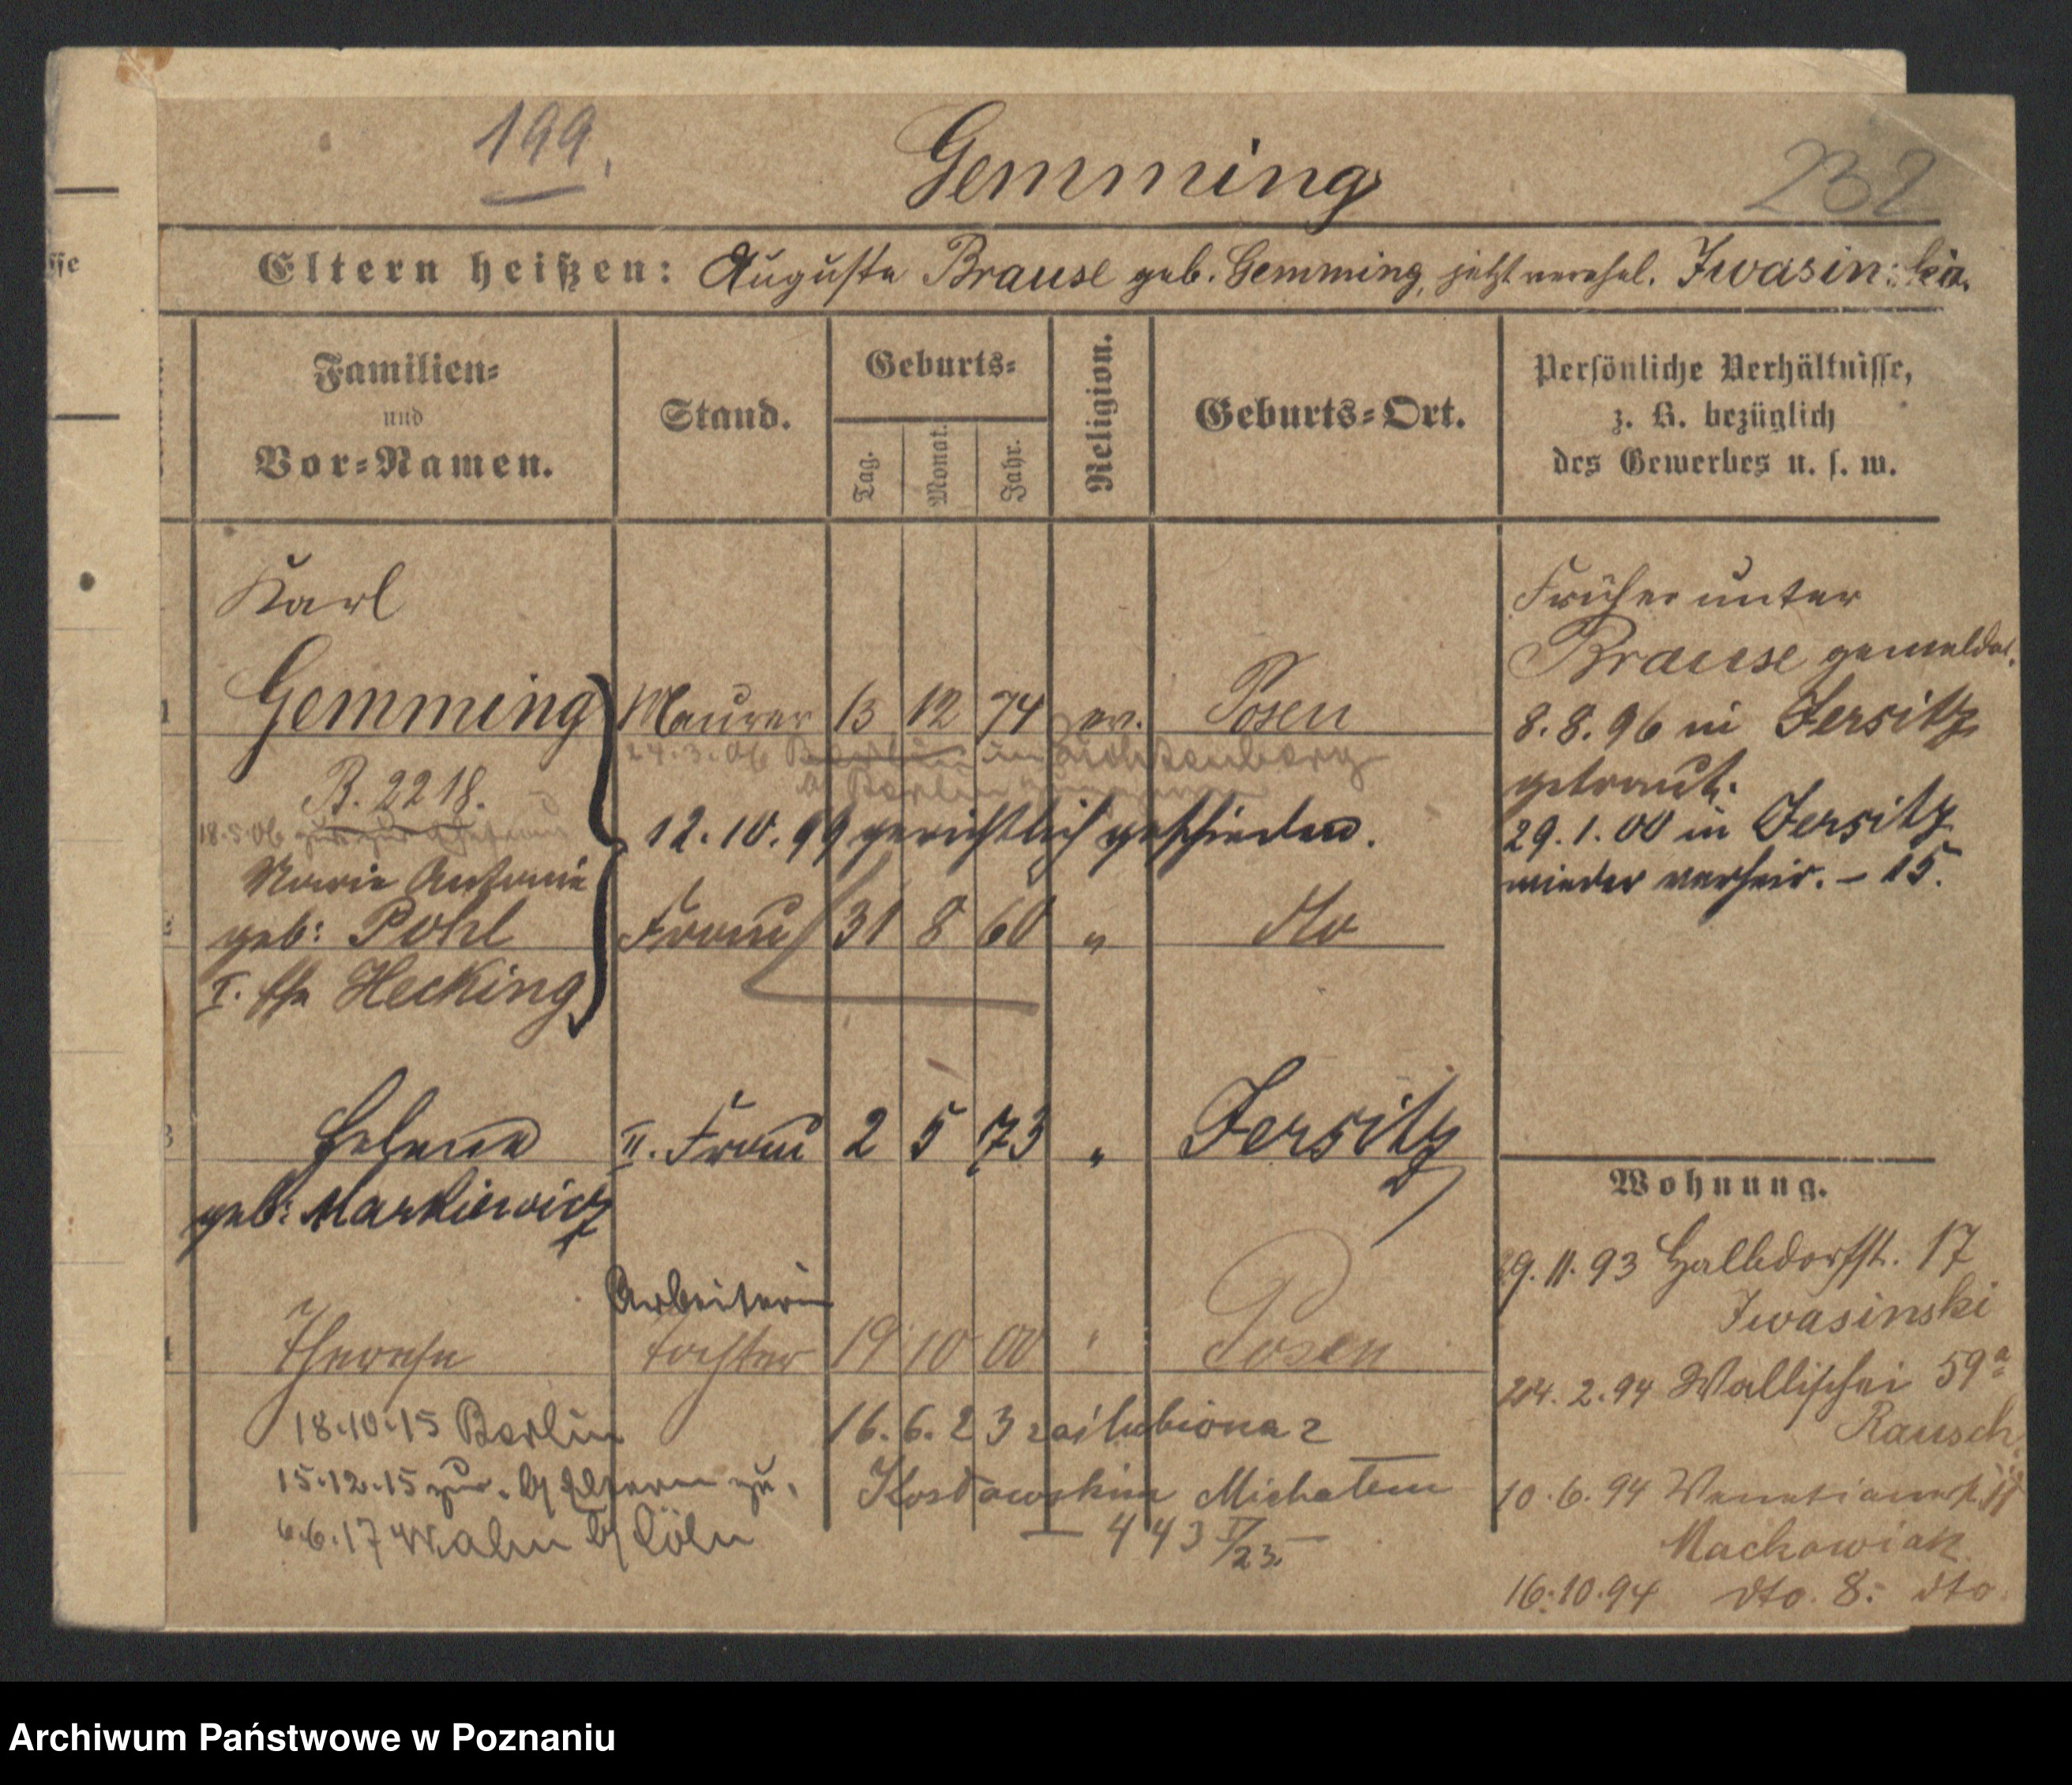 199.
Gemming
232
Eltern heißen: Auguste Brause geb. Gemming, jetzt verehel. Iwasinska.
Familien=
und
Vor=Namen.
Stand.
Geburts=
Tag.
Monat.
Jahr.
Religion.
Geburts=Ort.
Persönliche Verhältnisse,
z. B. bezüglich
des Gewerbes u. s. w.
Karl
Gemming Maurer 13 12 74 ev. Posen
24.3.06 Berlin in Lichtenberg
b/ Berlin
B. 2218.
18.5.06 zur
12.10.99 gerichtlich geschieden.
Marie Antonie
geb: Pohl Frau 31 8 60 " dto
I. Ehe Hecking
Helene II. Frau 2 5 73 " Jersitz
geb: Markiewicz
Arbeiterin
Therese Tochter 19 10 00 " Posen
18.10.15 Berlin
15.12.15 zur. b/ Eltern zu.
6.6.17 Wahn b/ Cöln
16.6.23 zaślubiona z
Michałem
— 443 V/23. —
Früher unter
Brause gemeldet.
8.8.96 in Jersitz
getraut.
29.1.00 in Jersitz
wieder verheir. – 15.
Wohnung.
29.11.93 Halbdorfst. 17
Iwasinski
24.2.94 Wallischei 59a
Rausch
10.6.94 Venetianerst. 11
Machowiak
16.10.94 dto. 8. dto
Archiwum Państwowe w Poznaniu